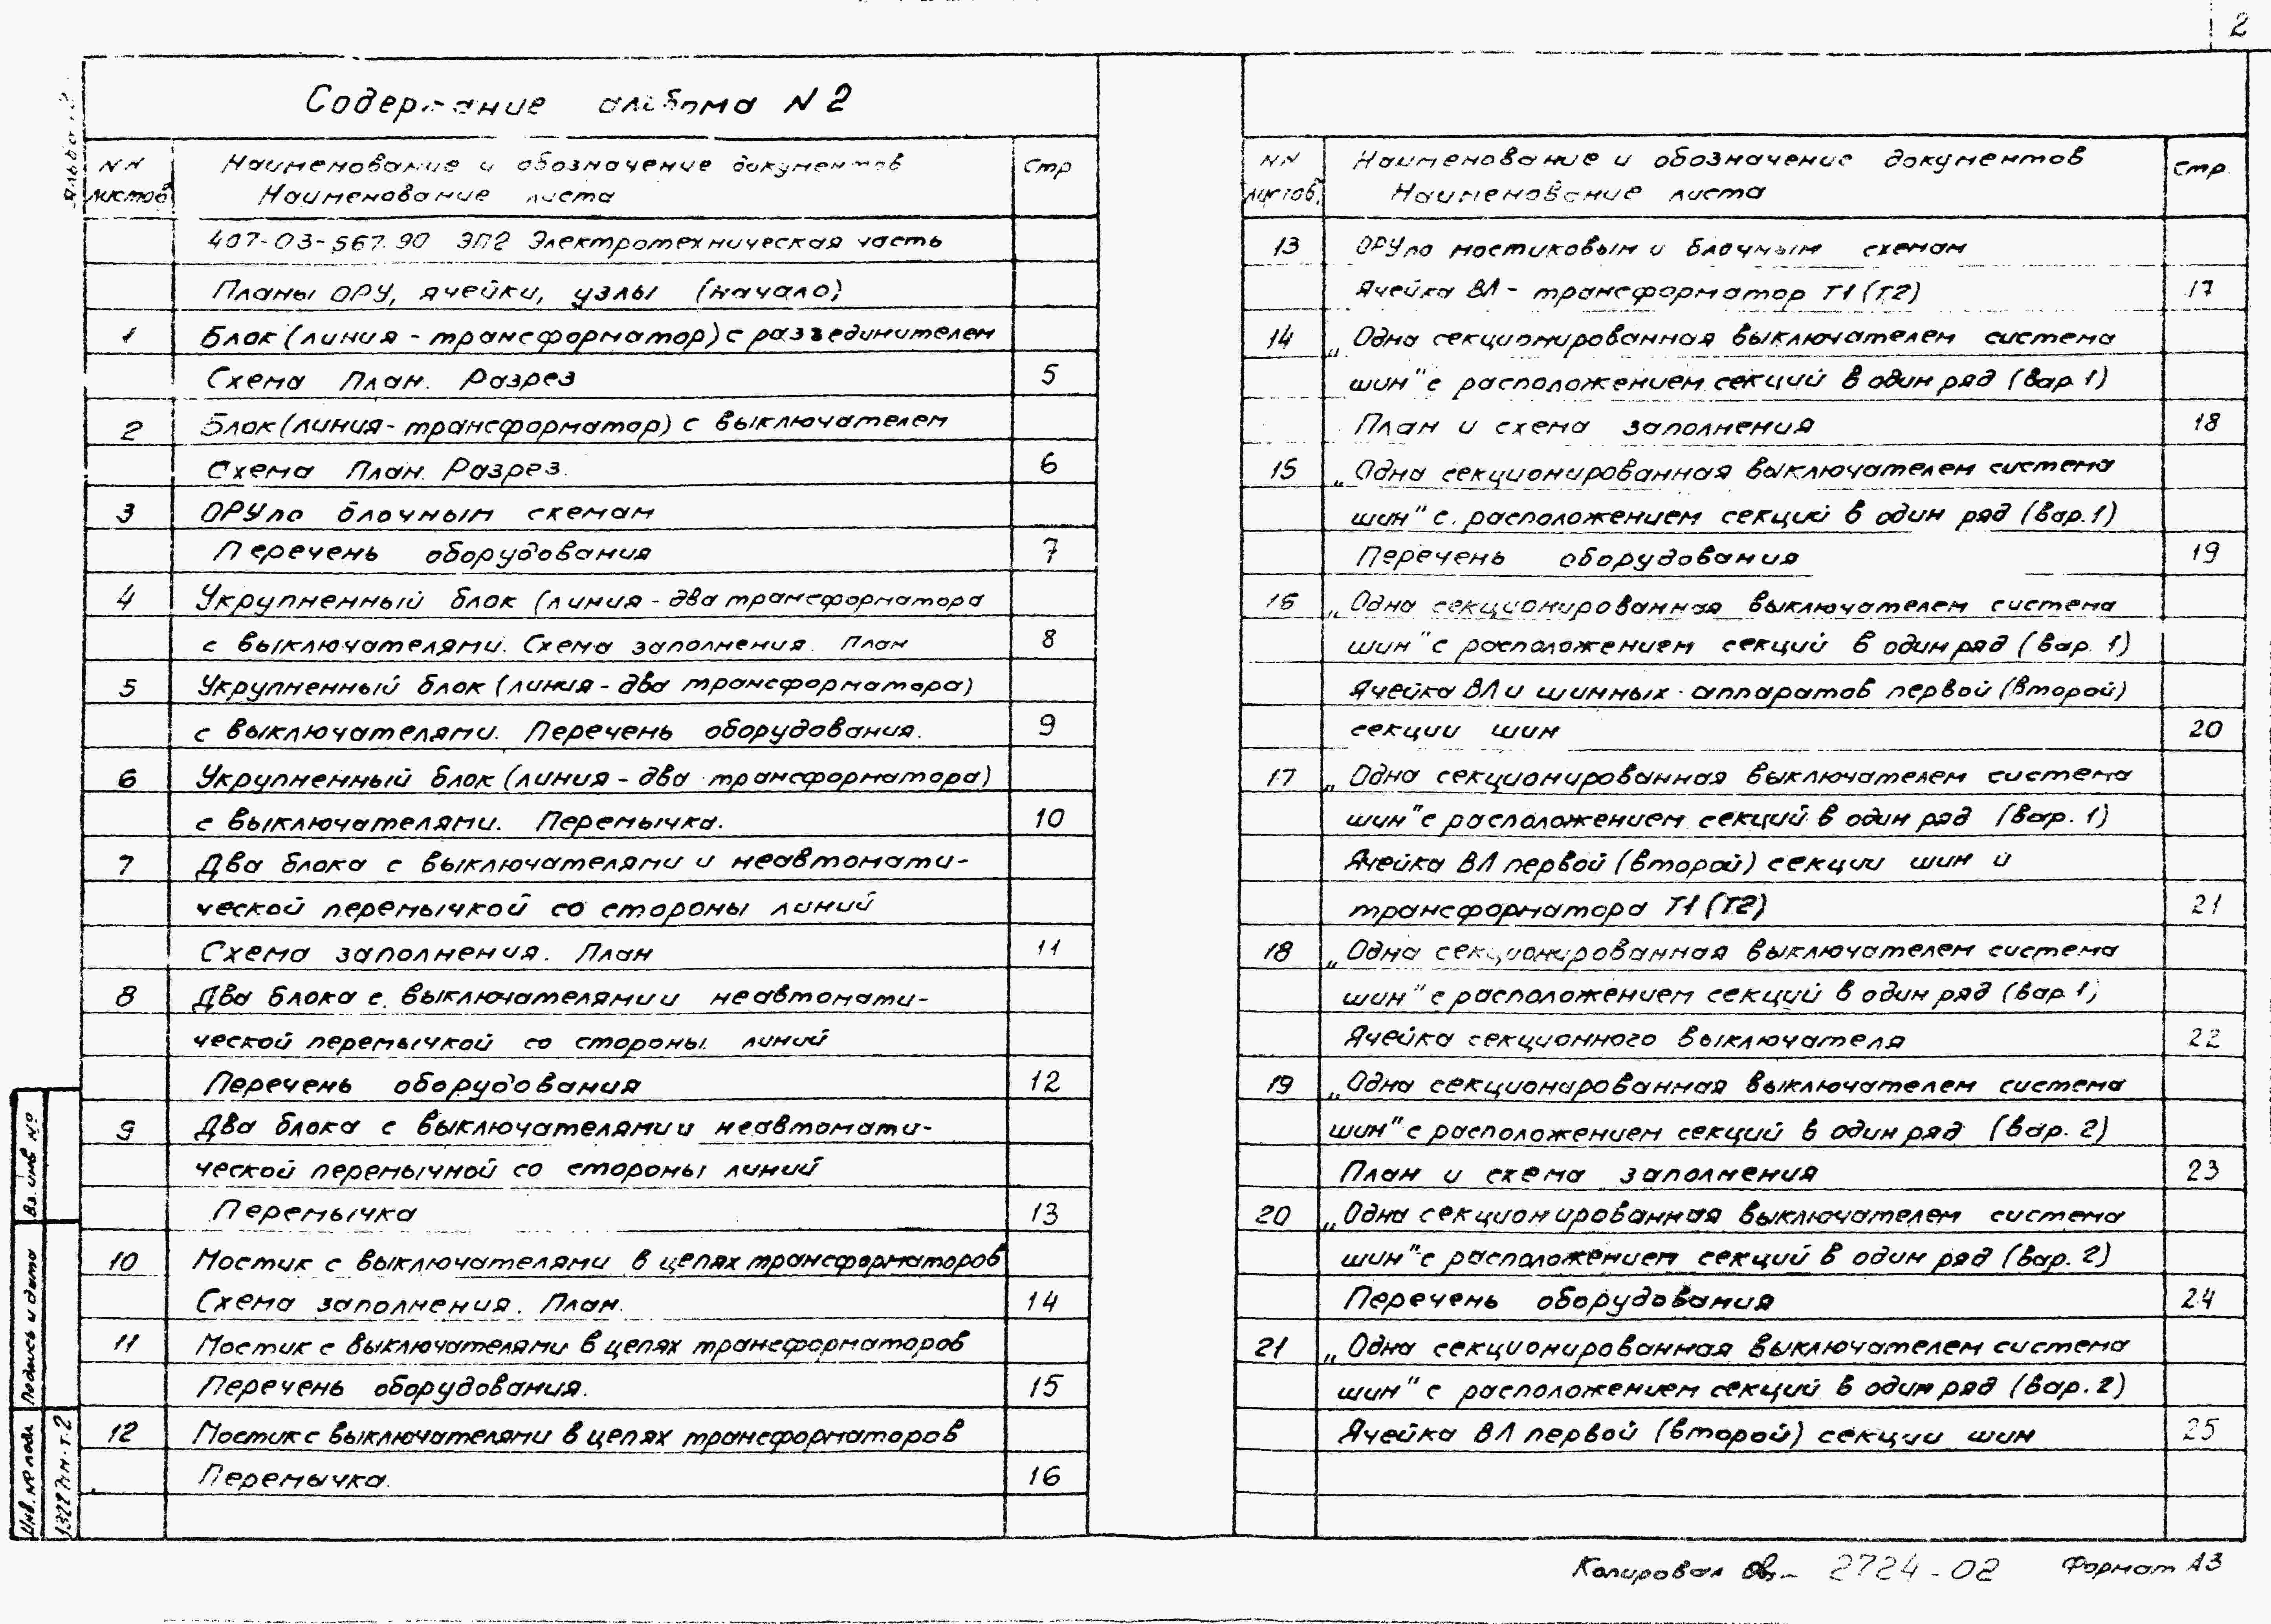 2
Содержание альбома N 2
NN листов
Наименование и обозначение документов
Наименование листа
Стр
407-03-567.90 ЭП2 Электротехническая часть
Планы ОРУ, ячейки, узлы (начало)
1 Блок (линия - трансформатор) с разъединителем
Схема План. Разрез 5
2 Блок (линия - трансформатор) с выключателем
Схема План. Разрез. 6
3 ОРУ по блочным схемам
Перечень оборудования 7
4 Укрупненный блок (линия - два трансформатора
с выключателями. Схема заполнения. План 8
5 Укрупненный блок (линия - два трансформатора)
с выключателями. Перечень оборудования. 9
6 Укрупненный блок (линия - два трансформатора)
с выключателями. Перемычка. 10
7 Два блока с выключателями и неавтомати-
ческой перемычкой со стороны линий
Схема заполнения. План 11
8 Два блока с выключателями и неавтомати-
ческой перемычкой со стороны линий
Перечень оборудования 12
9 Два блока с выключателями и неавтомати-
ческой перемычной со стороны линий
Перемычка 13
10 Мостик с выключателями в цепях трансформаторов
Схема заполнения. План. 14
11 Мостик с выключателями в цепях трансформаторов
Перечень оборудования. 15
12 Мостик с выключателями в цепях трансформаторов
Перемычка. 16
NN листов,
Наименование и обозначение документов
Наименование листа
Стр.
13 ОРУ по мостиковым и блочным схемам
Ячейка ВЛ - трансформатор Т1 (Т2) 17
14 „Одна секционированная выключателем система
шин" с расположением секций в один ряд (вар. 1)
План и схема заполнения 18
15 „Одна секционированная выключателем система
шин" с расположением секций в один ряд (вар. 1)
Перечень оборудования 19
16 „Одна секционированная выключателем система
шин" с расположением секций в один ряд (вар. 1)
Ячейка ВЛ и шинных аппаратов первой (второй)
секции шин 20
17 „Одна секционированная выключателем система
шин" с расположением секций в один ряд (вар. 1)
Ячейка ВЛ первой (второй) секции шин и
трансформатора Т1 (Т2) 21
18 „Одна секционированная выключателем система
шин" с расположением секций в один ряд (вар 1)
Ячейка секционного выключателя 22
19 „Одна секционированная выключателем система
шин" с расположением секций в один ряд (вар. 2)
План и схема заполнения 23
20 „Одна секционированная выключателем система
шин" с расположением секций в один ряд (вар. 2)
Перечень оборудования 24
21 „Одна секционированная выключателем система
шин" с расположением секций в один ряд (вар. 2)
Ячейка ВЛ первой (второй) секции шин 25
Вз. инв №
Подпись и дата
Инв. № подл
13227тм-т.2
Копировал 2724-02 Формат А3